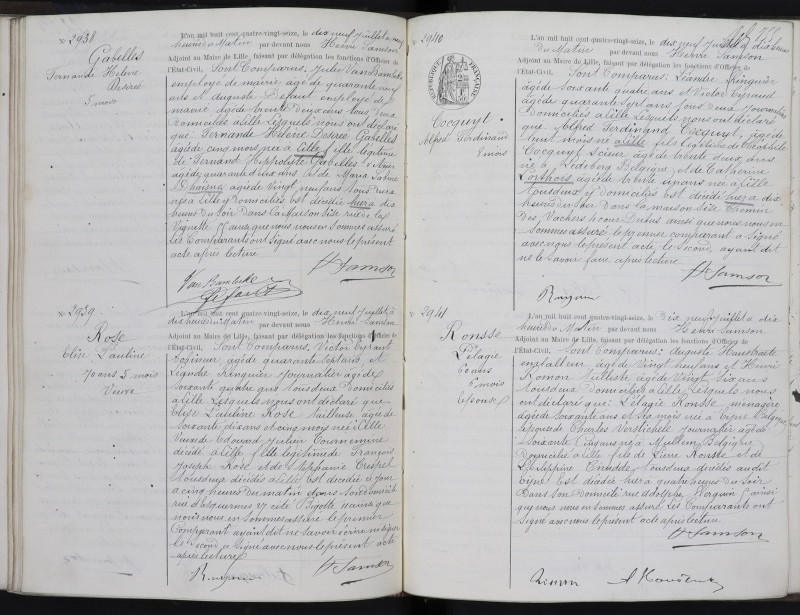 No 2938
Gabelles
Fernande Hélène
Désirée
5 mois
L'an mil huit cent quatre-vingt-seize, le dix neuf juillet à neuf
heures du Matin par devant nous Henri Samson
Adjoint au Maire de Lille, faisant par délégation les fonctions d'Officier de
l'État-Civil, Sont Comparus, Jules Van Bambeke
employé de mairie âgé de quarante neuf
ans et Auguste Défaut employé de
mairie âgé de trente deux ans tous deux
Domiciliés à Lille Lesquels nous ont déclaré
que Fernande Hélène Désirée Gabelles
âgée de cinq mois née à Lille fille légitime
de Fernand Hippolyte Gabelles
âgé de quarante deux ans et de Maria
âgée de Vingt neuf ans tous deux
nés à Lille y Domiciliés est décédée hier à dix
heures du soir dans la Maison Sise rue de la
Vignette et ainsi que nous nous en sommes assuré
Les Comparants ont Signé avec nous le présent
acte après lecture
Van Bambeke
Défaut
H Samson
No 2939
Rose
Elise Pauline
70 ans 5 mois
Veuve
L'an mil huit cent quatre-vingt-seize, le dix neuf juillet à
dix heures du Matin par devant nous Henri Samson
Adjoint au Maire de Lille, faisant par délégation les fonctions d'Officier de
l'État-Civil, Sont Comparus, Victor
âgé de quarante sept ans et
Léandre Ringuier journalier âgé de
soixante quatre ans tous deux Domiciliés
à Lille Lesquels nous ont déclaré que
Elise Pauline Rose tailleuse âgée de
soixante dix ans et cinq mois née à Lille
Veuve de Edouard Julien Tournemine
décédé à Lille fille légitime de François
Joseph Rose et de Stéphanie Crespel
tous deux décédés à Lille est décédée ce jour
à cinq heures du matin dans son domicile
rue d'Aguesseau 27 cité Bigotte et ainsi que
nous nous en sommes assuré le premier
Comparant ayant dit ne savoir écrire ni signer
le Second a Signé avec nous le présent acte
après lecture
Ringuier
H Samson
No 2940
Cocquyt
Alfred Ferdinand
8 mois
RÉPUBLIQUE FRANÇAISE
L'an mil huit cent quatre-vingt-seize, le dix neuf juillet à dix heures
du Matin par devant nous Henri Samson
Adjoint au Maire de Lille, faisant par délégation les fonctions d'Officier de
l'État-Civil, Sont Comparus: Léandre Ringuier
âgé de Soixante quatre ans et Victor
âgé de quarante Sept ans tous deux journaliers
Domiciliés à Lille Lesquels nous ont déclaré
que Alfred Ferdinand Cocquyt, âgé de
huit mois né à Lille fils légitime de Théophile
Cocquyt Scieur âgé de trente deux ans
né à Ledeberg Belgique, et de Catherine
âgée de trente un ans née à Lille
tous deux y domiciliés est décédé hier à dix
heures du soir dans la maison Sise Chemin
des Vachers ainsi que nous nous en
sommes assuré le premier comparant a Signé
avec nous le présent acte, le Second, ayant dit
ne le savoir faire après lecture
H Samson
Ringuier
No 2941
Ronsse
Pélagie
60 ans
6 mois
Epouse
L'an mil huit cent quatre-vingt-seize, le Dix neuf juillet à dix
heures du Matin par devant nous Henri Samson
Adjoint au Maire de Lille, faisant par délégation les fonctions d'Officier de
l'État-Civil, Sont Comparus: Auguste
emballeur âgé de Vingt neuf ans et Henri
Ronon tulliste âgé de Vingt Six ans
tous deux Domiciliés à Lille Lesquels nous
ont déclaré que Pélagie Ronsse ménagère
âgée de Soixante ans et Six mois née à Eyne Belgique
épouse de Charles Verstichele journalier âgé de
Soixante cinq ans né à Mullem Belgique
Domiciliés à Lille fille de Pierre Ronsse et de
Philippine tous deux décédés audit
Eyne est décédée hier à quatre heures du soir
Dans son Domicile rue Adolphe Werquin et ainsi
que nous nous en sommes assuré. Les Comparants ont
Signé avec nous le présent acte après lecture
H Samson